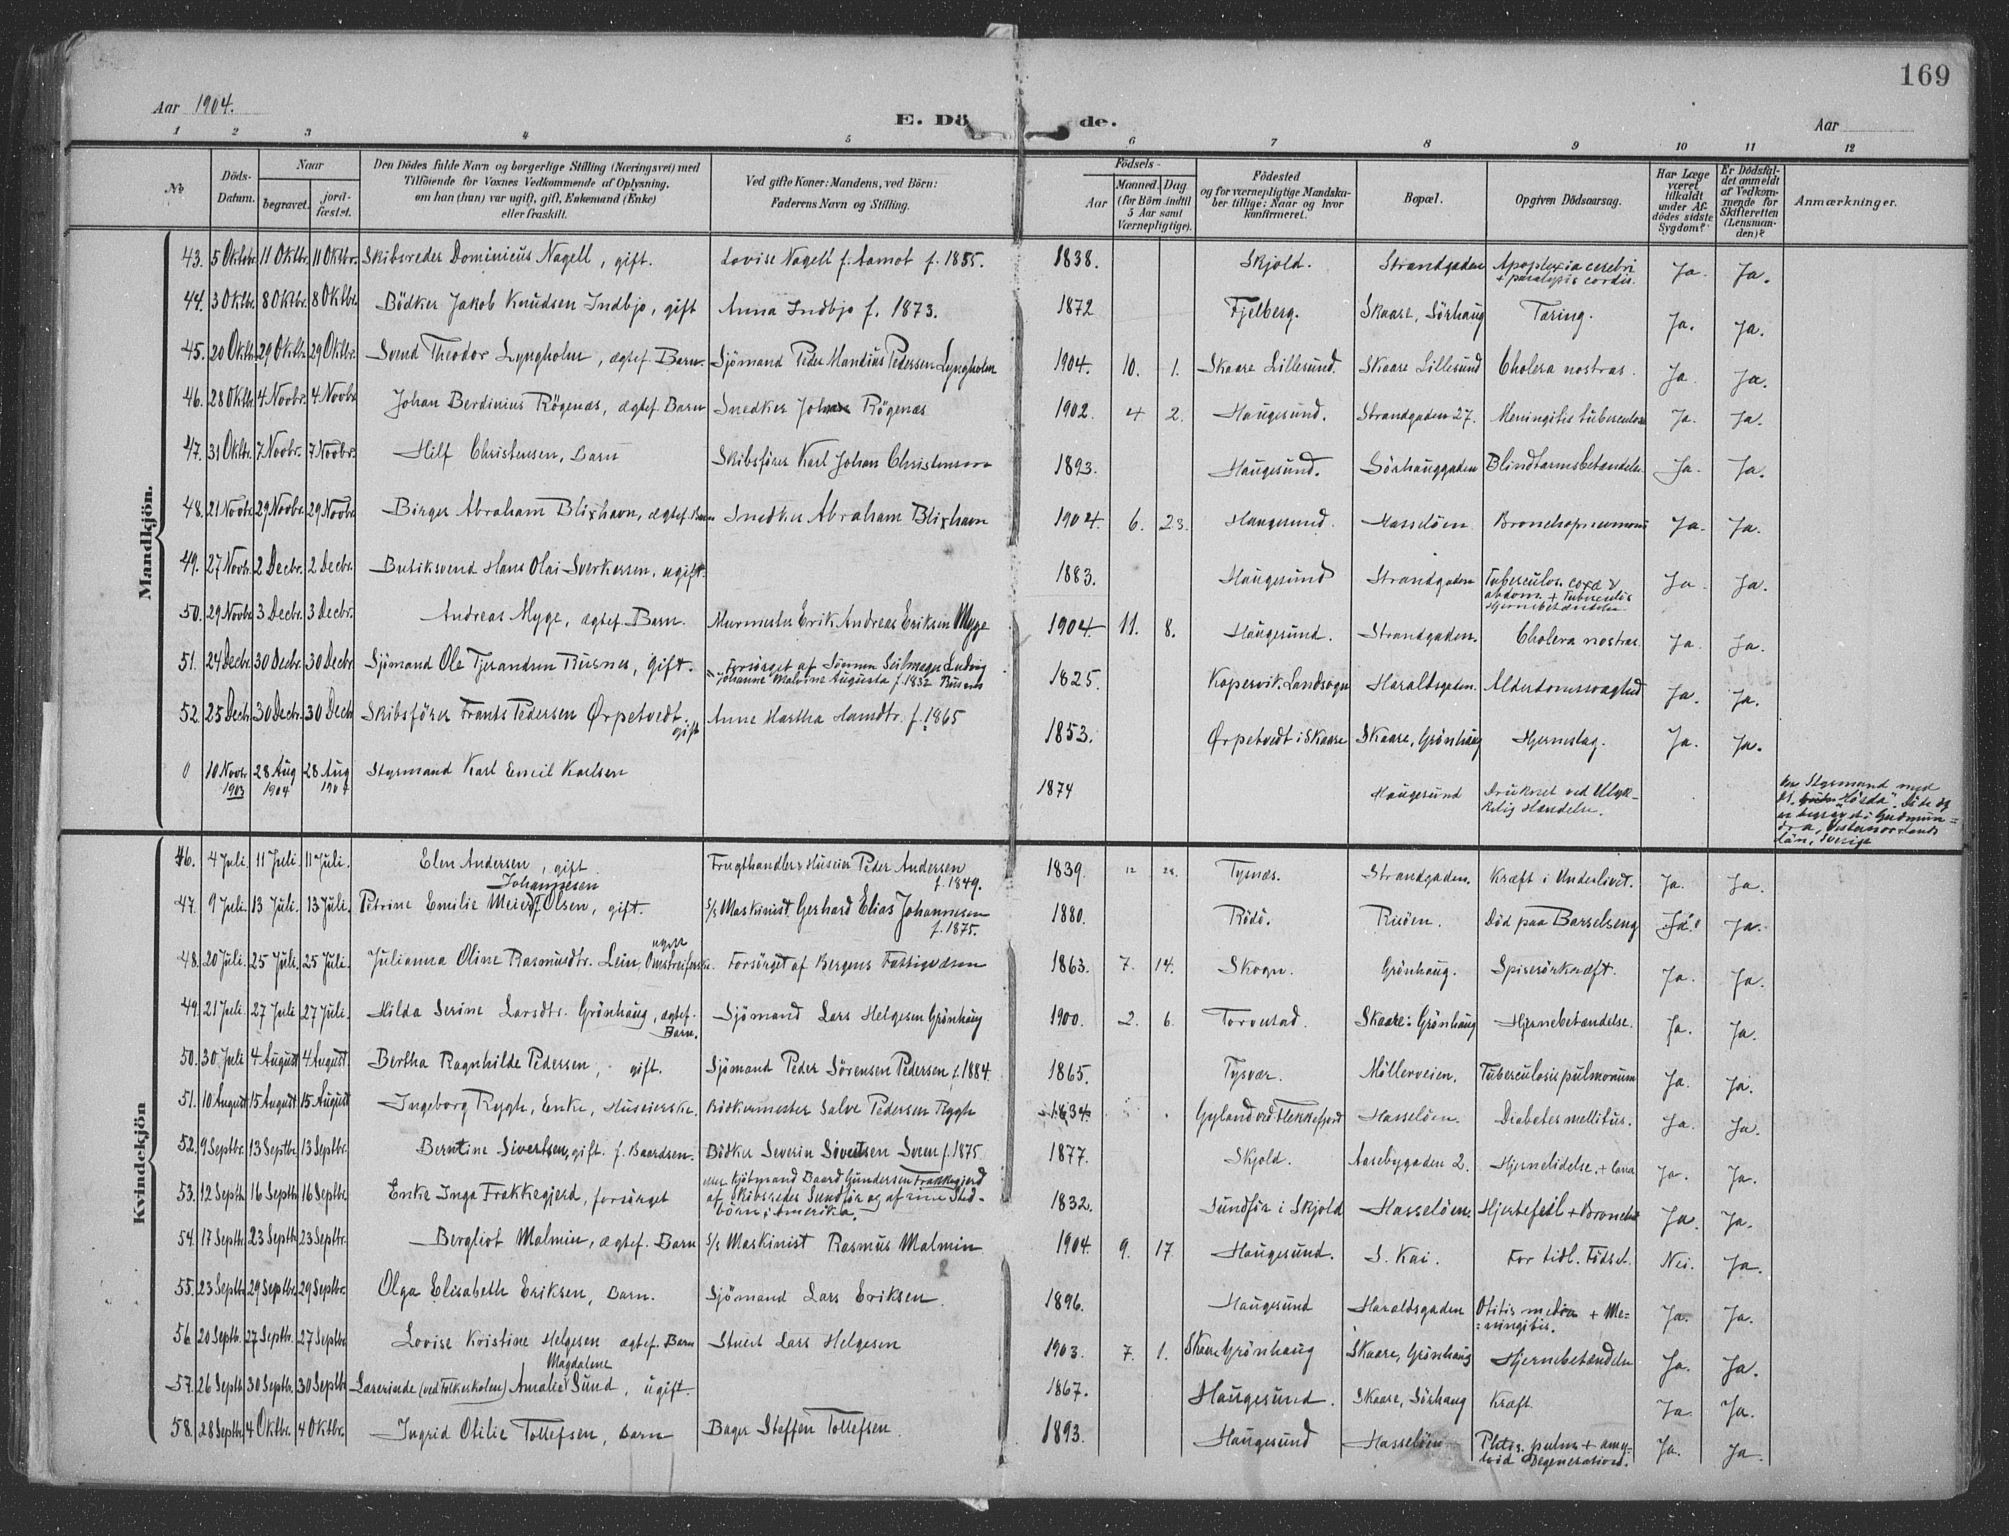 169
Aar 1904.
E. Dö de.
Aar
1 2 3 4 5 6 7 8 9 10 11 12
No
Döds-Datum.
Naar
begravet.
jord-fæstet.
Den Dödes fulde Navn og borgerlige Stilling (Næringsvei) med
Tilföiende for Voxnes Vedkommende af Oplysning,
om han (hun) var ugift, gift, Enkemand (Enke)
eller fraskilt.
Ved gifte Koner: Mandens, ved Börn:
Faderens Navn og Stilling.
Födsels-
Aar
Maaned. Dag.
(for Börn indtil
5 Aar samt
Værnepligtige).
Födested
og for værnepligtige Mandska-
ber tillige: Naar og hvor
konfirmeret.
Bopæl.
Opgiven Dödsaarsag.
Har Læge
været
tilkaldt
under Af-
dödes sidste
Sygdom?
Er Dödsfal-
det anmeldt
af Vedkom-
mende for
Skifteretten
(Lensman-
den)?
Anmærkninger.
Mandkjön.
43. 5 Oktbr. 11 Oktbr. 11 Oktbr. Skibsreder Dominicus Nagell, gift. Lovise Nagell f. Aamot f. 1855. 1838. Skjold. Strandgaden Apoplexia cerebri + paralysis cordis. Ja. Ja.
44. 3 Oktbr. 8 Oktbr. 8 Oktbr. Bödker Jakob Knudsen Indbjo, gift Anna Indbjo f. 1873. 1872 Fjelberg. Skaare, Sörhaug Tæring. Ja. Ja.
45. 20 Oktbr. 29 Oktbr. 29 Oktbr. Svend Theodor Lyngholm, ægtef. Barn. Sjömand Peder Mandius Pedersen Lyngholm 1904. 10. 1. Skaare Lillesund. Skaare Lillesund Cholera nostras. Ja. Ja.
46. 28 Oktbr. 4 Novbr. 4 Novbr. Johan Berdinius Rögenæs, ægtef. Barn Snedker Johan Rögenæs 1902. 4 2. Haugesund. Strandgaden 27. Meningitis tuberculosa Ja. Ja.
47. 31 Oktbr. 7 Novbr. 7 Novbr. Hilf Christensen, Barn Skibsförer Karl Johan Christensen 1893. Haugesund. Sörhauggaden Blindtarmsbetændelse. Ja. Ja.
48. 21 Novbr. 29 Novbr. 29 Novbr. Birger Abraham Blixhavn, ægtef. Barn Snedker Abraham Blixhavn 1904. 6. 23. Haugesund. Hasselöen. Bronchopneumoni Ja. Ja.
49. 27 Novbr. 2 Decbr. 2 Decbr. Butiksvend Hans Olai Sverkersen, ugift. 1883. Haugesund Strandgaden Tuberculos. coxæ & abdom. + Tuberculös Hjernebetændelse. Ja. Ja.
50. 29 Novbr. 3 Decbr. 3 Decbr. Andreas Myge, ægtef. Barn. Murmester Erik Andreas Eriksen Myge 1904 11. 8. Haugesund. Strandgaden. Cholera nostras. Ja. Ja.
51. 24 Decbr. 30 Decbr. 30 Decbr. Sjömand Ole Tjerandsen Busnes, gift. Forsörget af Sönnen Seilmager Ludvig Johanne Malvine Augusta f. 1832 Busnes 1825. Kopervik Landsogn Haraldsgaden. Alderdomssvaghed Ja. Ja.
52. 25 Decbr. 30 Decbr. 30 Decbr. Skibsförer Frants Pedersen Ørpetvedt. gift Anne Martha Hamdtr. f. 1865 1853. Ørpetvedt i Skaare Skaare, Grönhaug Hjerneslag. Ja. Ja.
0 10 Novbr. 1903 28 Aug 1904 28 Aug 1904 Styrmand Karl Emil Karlsen 1874 Haugesund Druknet ved Ulyk-kelig Hændelse. Styrmand med "Hösda". Döde og er begravet i Gudmun-dra, Vesternorrlands län, Sverige
Kvindekjön
46. 4 Juli 11 Juli. 11 Juli. Elen Andersen, gift. Frugthandler & Huseier Peder Andersen f. 1849. 1839. 12 28. Tysnæs. Strandgaden. Kræft i Underlivet. Ja. Ja.
47. 9 Juli 13 Juli. 13 Juli. Petrine Emilie Meier Johannesen f. Olsen, gift. S/s Maskinist Gerhard Elias Johannesen f. 1875. 1880. Rödö. Risöen. Död paa Barselseng Ja. Ja.
48. 20 Juli. 25 Juli. 25 Juli. Julianna Oline Rasmusdtr. Lein, ugift Omstreiferske. Forsörget af Bergens Fattigvæsen 1863. 7. 14. Skogn. Grönhaug. Spiserörkræft. Ja. Ja.
49. 21 Juli. 27 Juli 27 Juli. Hilda Serine Larsdtr. Grönhaug, ægtef. Barn. Sjömand Lars Helgesen Grönhaug 1900. 2. 6. Torvestad. Skaare: Grönhaug Hjernebetændelse. Ja. Ja.
50. 30 Juli 4 August 4 August. Bertha Ragnhilde Pedersen, gift. Sjömand Peder Sörensen Pedersen, f. 1884. 1865. Tysvær. Möllerveien. Tuberculosis pulmonum Ja. Ja.
51. 10 August 15 August 15 August Ingeborg Rygh, Enke, Huseierske. Bödkermester Salve Pedersen Rygh 1834 Gyland ved Flekkefjord Hasselöen. Diabetes mellitus. Ja. Ja.
52. 9 Septbr. 13 Septbr. 13 Septbr. Berntine Sivertsen, gift. f. Baardsen. Bödker Severin Sivertsen Soren f. 1875. 1877. Skjold. Aasebygaden 2. Hjernelidelse. Ja. Ja.
53. 12 Septbr. 16 Septbr. 16 Septbr. Enke Inga Frakkegjerd, forsörget Baard Gundersen Frakkegjerd af Skibsreder Sundför og af sine Sted-börn i Amerika. 1832. Sundför i Skjold Hasselöen. Hjertefeil + Bronchit Ja. Ja.
54. 17 Septbr. 23 Septbr. 23 Septbr. Bergliot Malmin, ægtef. Barn S/s Maskinist Rasmus Malmin 1904. 9. 17. Haugesund. S. Kai. For tidl. Födsel. Nei. Ja.
55. 23 Septbr. 29 Septbr. 29 Septbr. Olga Elisabeth Eriksen, Barn. Sjömand Lars Eriksen. 1896. Haugesund Haraldsgaden Otitis media + Me-ningitis. Ja. Ja.
56 20 Septbr. 27 Septbr. 27 Septbr Lovise Kristine Helgesen ægtef. Barn Stuert Lars Helgesen 1903. 7. 1. Skaare Grönhaug Skaare, Grönhaug Hjernebetændelse Ja. Ja.
57. 26 Septbr 30 Septbr. 30 Septbr Lærerinde (ved Folkeskolen) Amalie Magdalene Sund, ugift. 1867. Haugesund. Skaare, Sörhaug Kræft Ja. Ja.
58. 28 Septbr 4 Oktbr. 4 Oktbr. Ingrid Otilie Tollefsen, Barn Bager Steffen Tollefsen. 1893. Haugesund Hasselöen Phtis. pulm + amy-loid Degeneration. Ja. Ja.